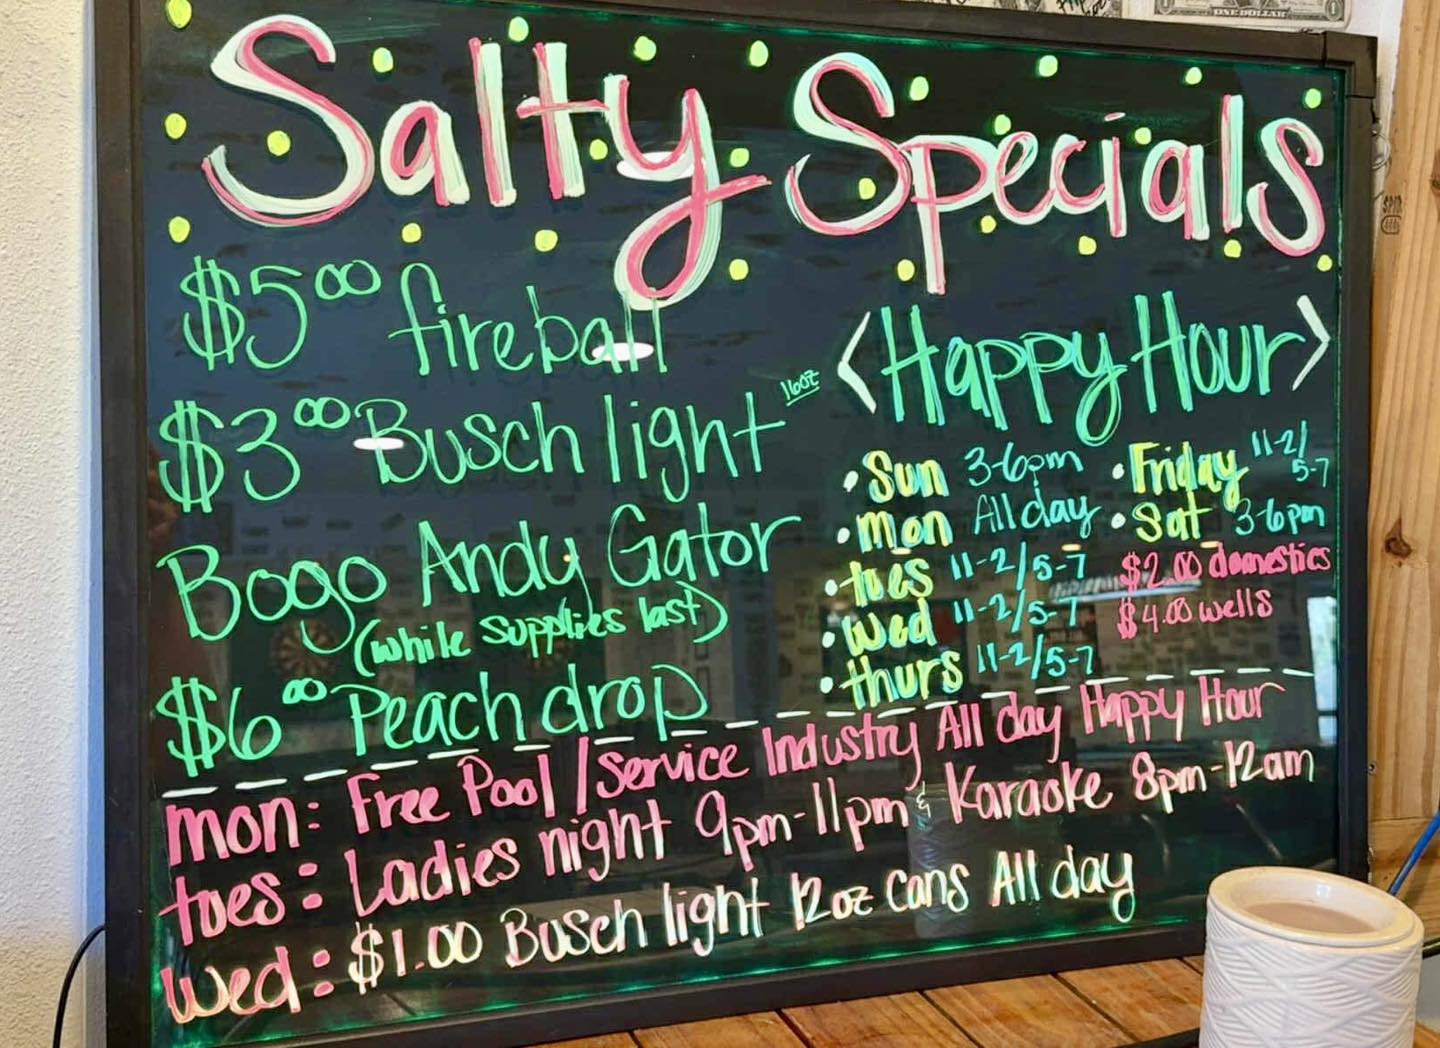 ONE DOLLAR
Salty Specials
$5.00 fireball
$3.00 Busch light 16oz
Bogo Andy Gator
(while supplies last)
$6.00 Peach drop
<Happy Hour>
• Sun 3-6pm
• Mon All day
• tues 11-2/5-7
• Wed 11-2/5-7
• thurs 11-2/5-7
• Friday 11-2/5-7
• Sat 3-6pm
$2.00 domestics
$4.00 wells
mon: Free Pool/Service Industry All day Happy Hour
tues: Ladies night 9pm-11pm & Karaoke 8pm-12am
Wed: $1.00 Busch light 12oz cans All day